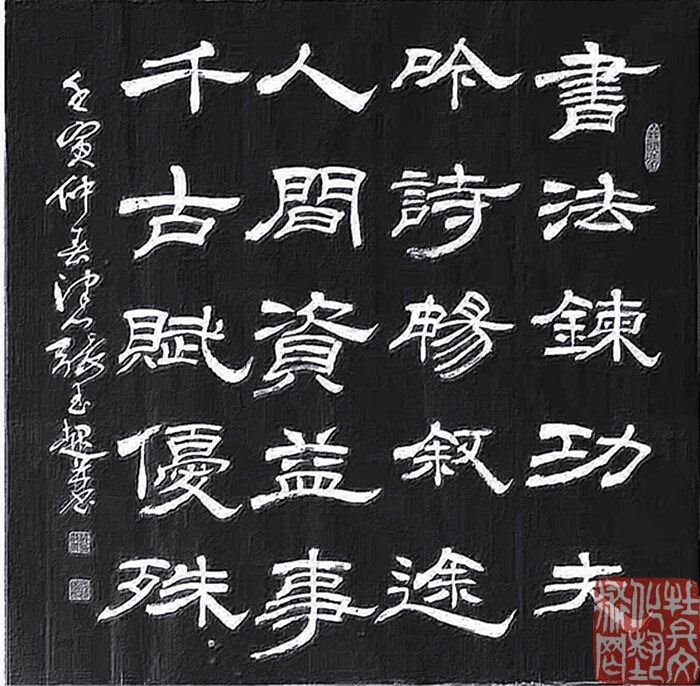 書法鍊功夫
吟詩暢叙途
人間資益事
千古賦優殊
壬寅仲春津玉超書